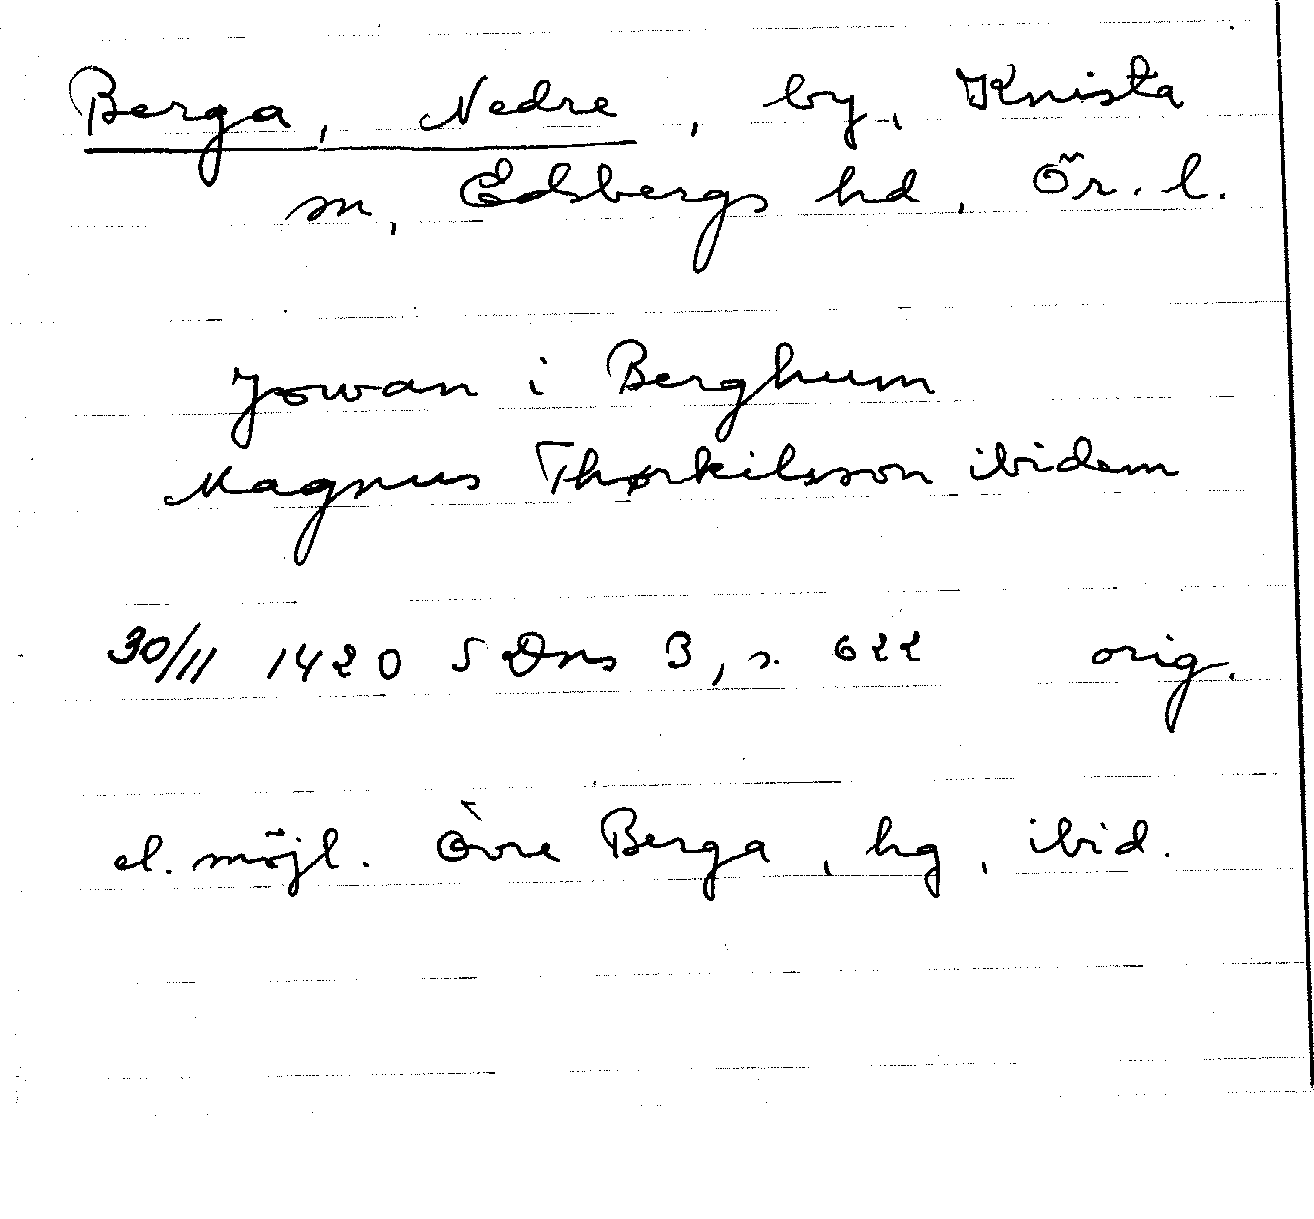 Berga, Nedre, by, Knista
sn, Edsbergs hd, Ör. l.
Jowan i Berghum
Magnus Thørkilsson ibidem
30/11 1420 SDns 3, s. 622 orig.
el. möjl. Övre Berga, hg, ibid.